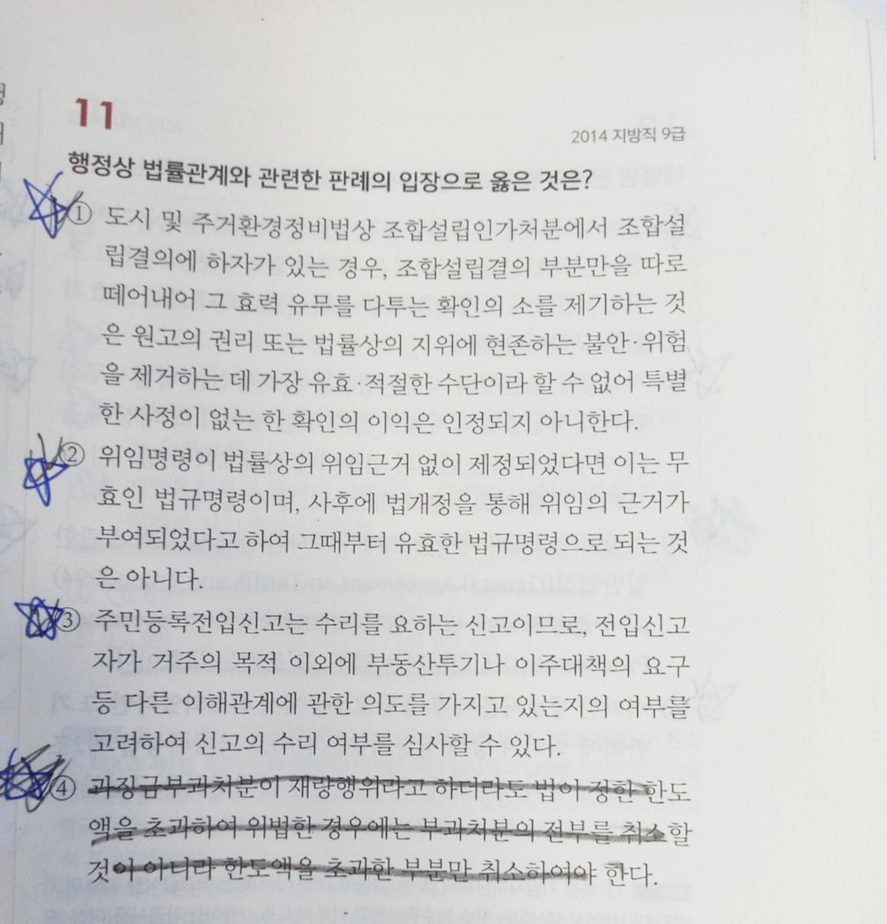 11
2014 지방직 9급
행정상 법률관계와 관련한 판례의 입장으로 옳은 것은?
① 도시 및 주거환경정비법상 조합설립인가처분에서 조합설
립결의에 하자가 있는 경우, 조합설립결의 부분만을 따로
떼어내어 그 효력 유무를 다투는 확인의 소를 제기하는 것
은 원고의 권리 또는 법률상의 지위에 현존하는 불안·위험
을 제거하는 데 가장 유효·적절한 수단이라 할 수 없어 특별
한 사정이 없는 한 확인의 이익은 인정되지 아니한다.
② 위임명령이 법률상의 위임근거 없이 제정되었다면 이는 무
효인 법규명령이며, 사후에 법개정을 통해 위임의 근거가
부여되었다고 하여 그때부터 유효한 법규명령으로 되는 것
은 아니다.
③ 주민등록전입신고는 수리를 요하는 신고이므로, 전입신고
자가 거주의 목적 이외에 부동산투기나 이주대책의 요구
등 다른 이해관계에 관한 의도를 가지고 있는지의 여부를
고려하여 신고의 수리 여부를 심사할 수 있다.
④ 과징금부과처분이 재량행위라고 하더라도 법이 정한 한도
액을 초과하여 위법한 경우에는 부과처분의 전부를 취소할
것이 아니라 한도액을 초과한 부분만 취소하여야 한다.